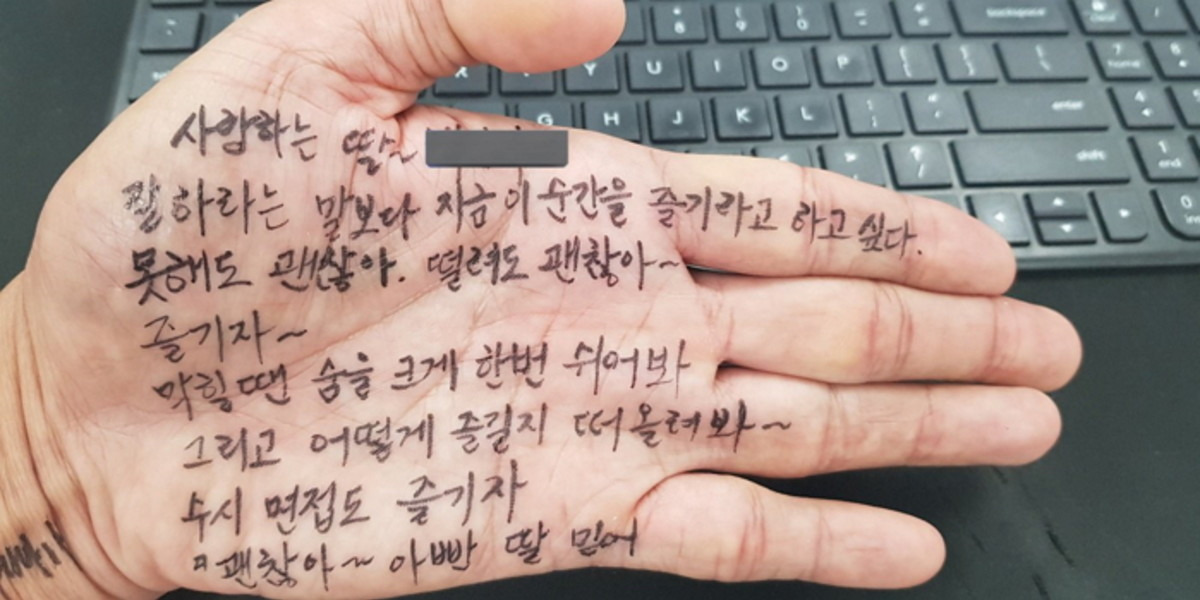 backspace
R Y U I O P
home
G H J K L
enter
shift
end
사랑하는 딸~
잘하라는 말보다 지금 이 순간을 즐기라고 하고 싶다.
못해도 괜찮아. 떨려도 괜찮아~
즐기자~
막힐땐 숨을 크게 한번 쉬어봐
그리고 어떻게 즐길지 떠올려봐~
수시 면접도 즐기자
괜찮아~ 아빤 딸 믿어